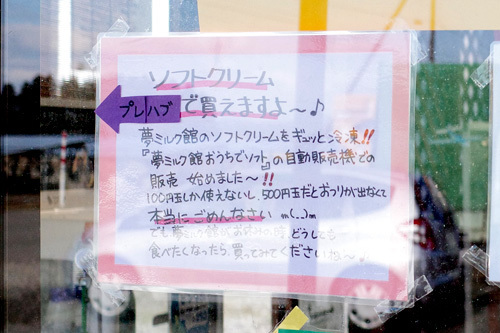 ソフトクリーム
プレハブで買えますよ〜♪
夢ミルク館のソフトクリームをギュッと冷凍!!
『夢ミルク館おうちでソフト』の自動販売機での
販売 始めました〜!!
100円玉しか使えないし、500円玉だとおつりが出なくて
本当にごめんなさい m(_ _)m
でも夢ミルク館がお休みの時 どうしても
食べたくなったら、買ってみてくださいね〜♪